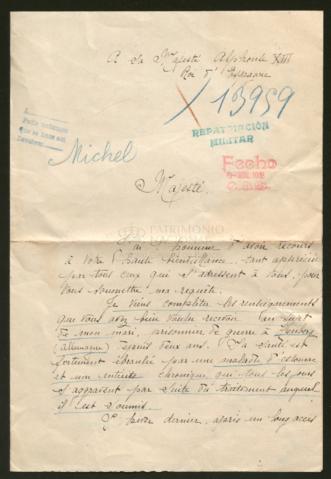 A Sa Majesté Alphonse XIII
Roi d'Espagne
13959
REPATRIACIÓN
MILITAR
Fecho
Michel
Majesté.
PATRIMONIO
J'ai l'honneur d'avoir recours
à votre haute bienveillance, tant appréciée
par tous ceux qui s'adressent à vous, pour
vous soumettre ma requête.
Je viens compléter les renseignements
que vous avez bien voulu recevoir au sujet
de mon mari, prisonnier de guerre à
(Allemagne) depuis deux ans. Sa santé est
fortement ébranlée par une maladie d'estomac
et une entérite chronique qui tous les jours
s'aggravent par suite du traitement auquel
il est soumis.
L'hiver dernier, après un long accès